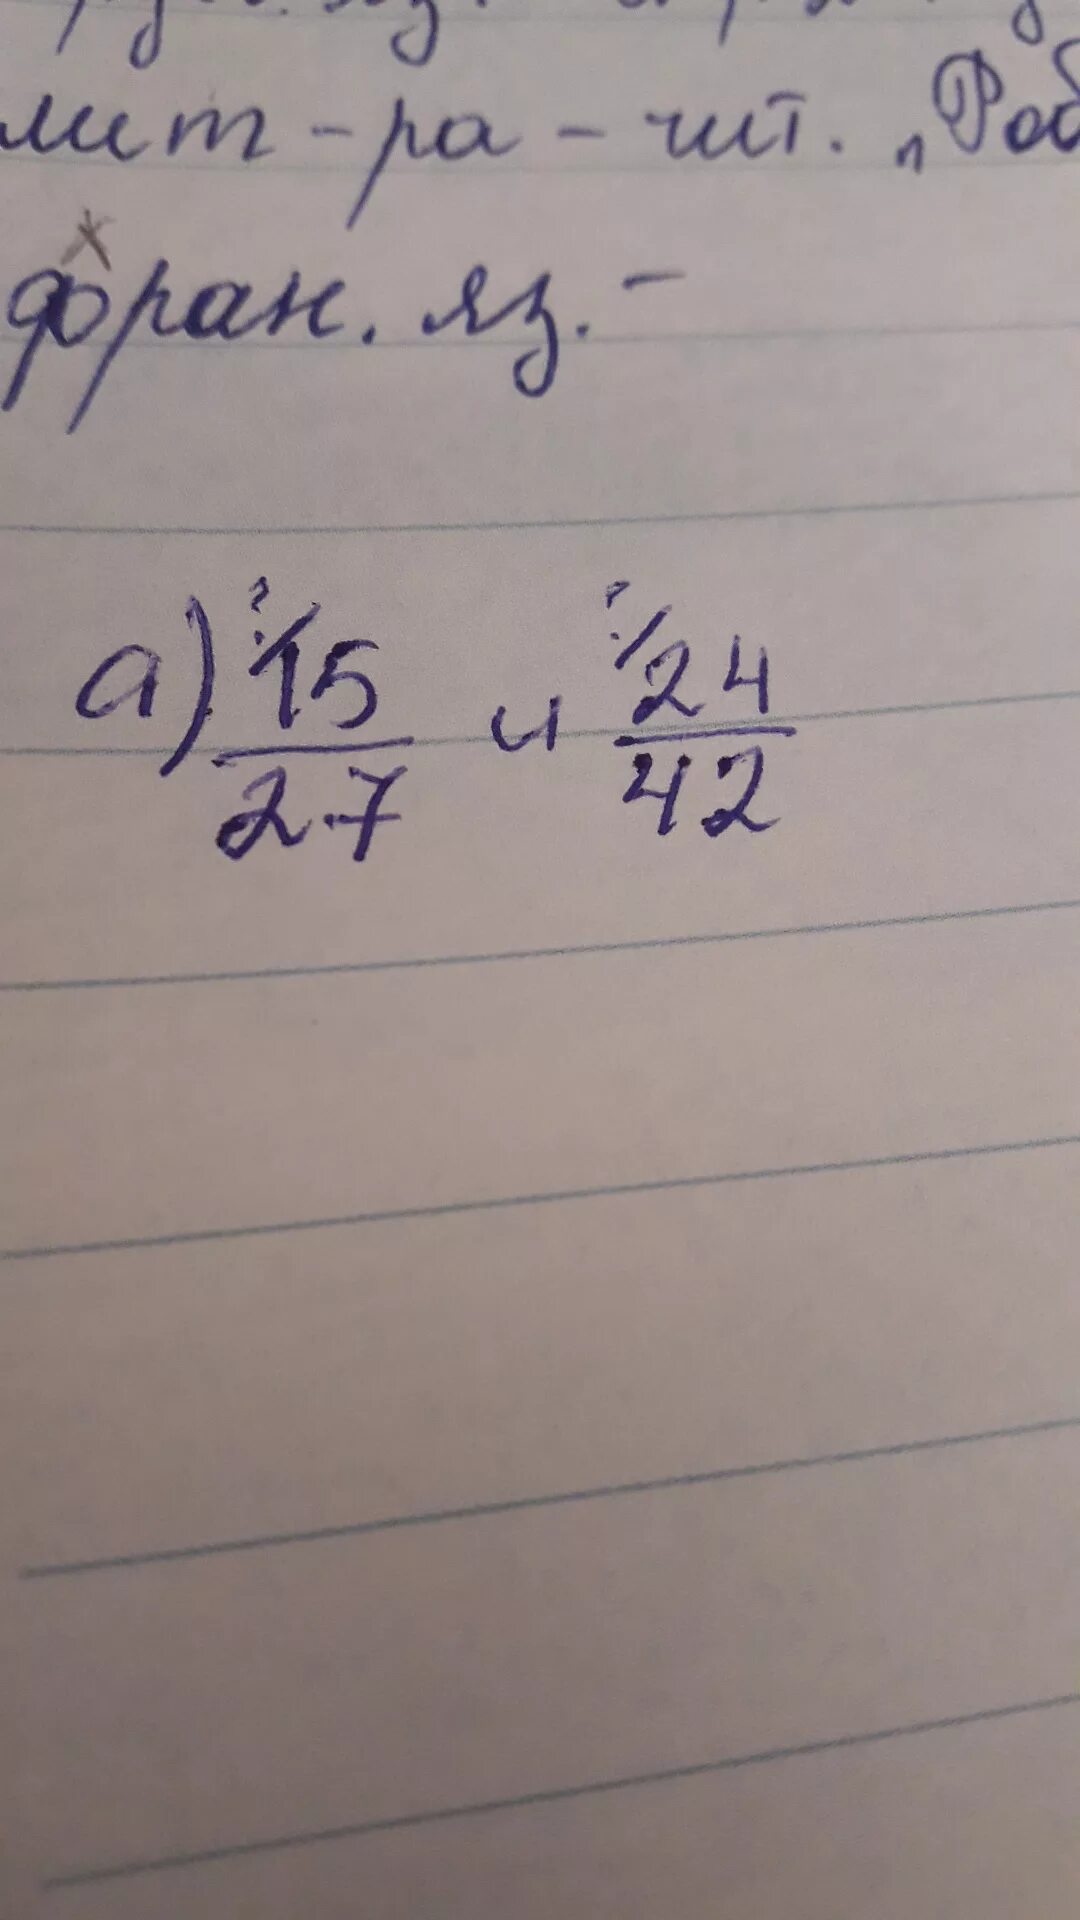 лит-ра - чит. „Роб
фран. яз. -
а) ?/15 и ?/24
27 42